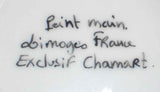 Peint main.
Limoges France
Exclusif Chamart.